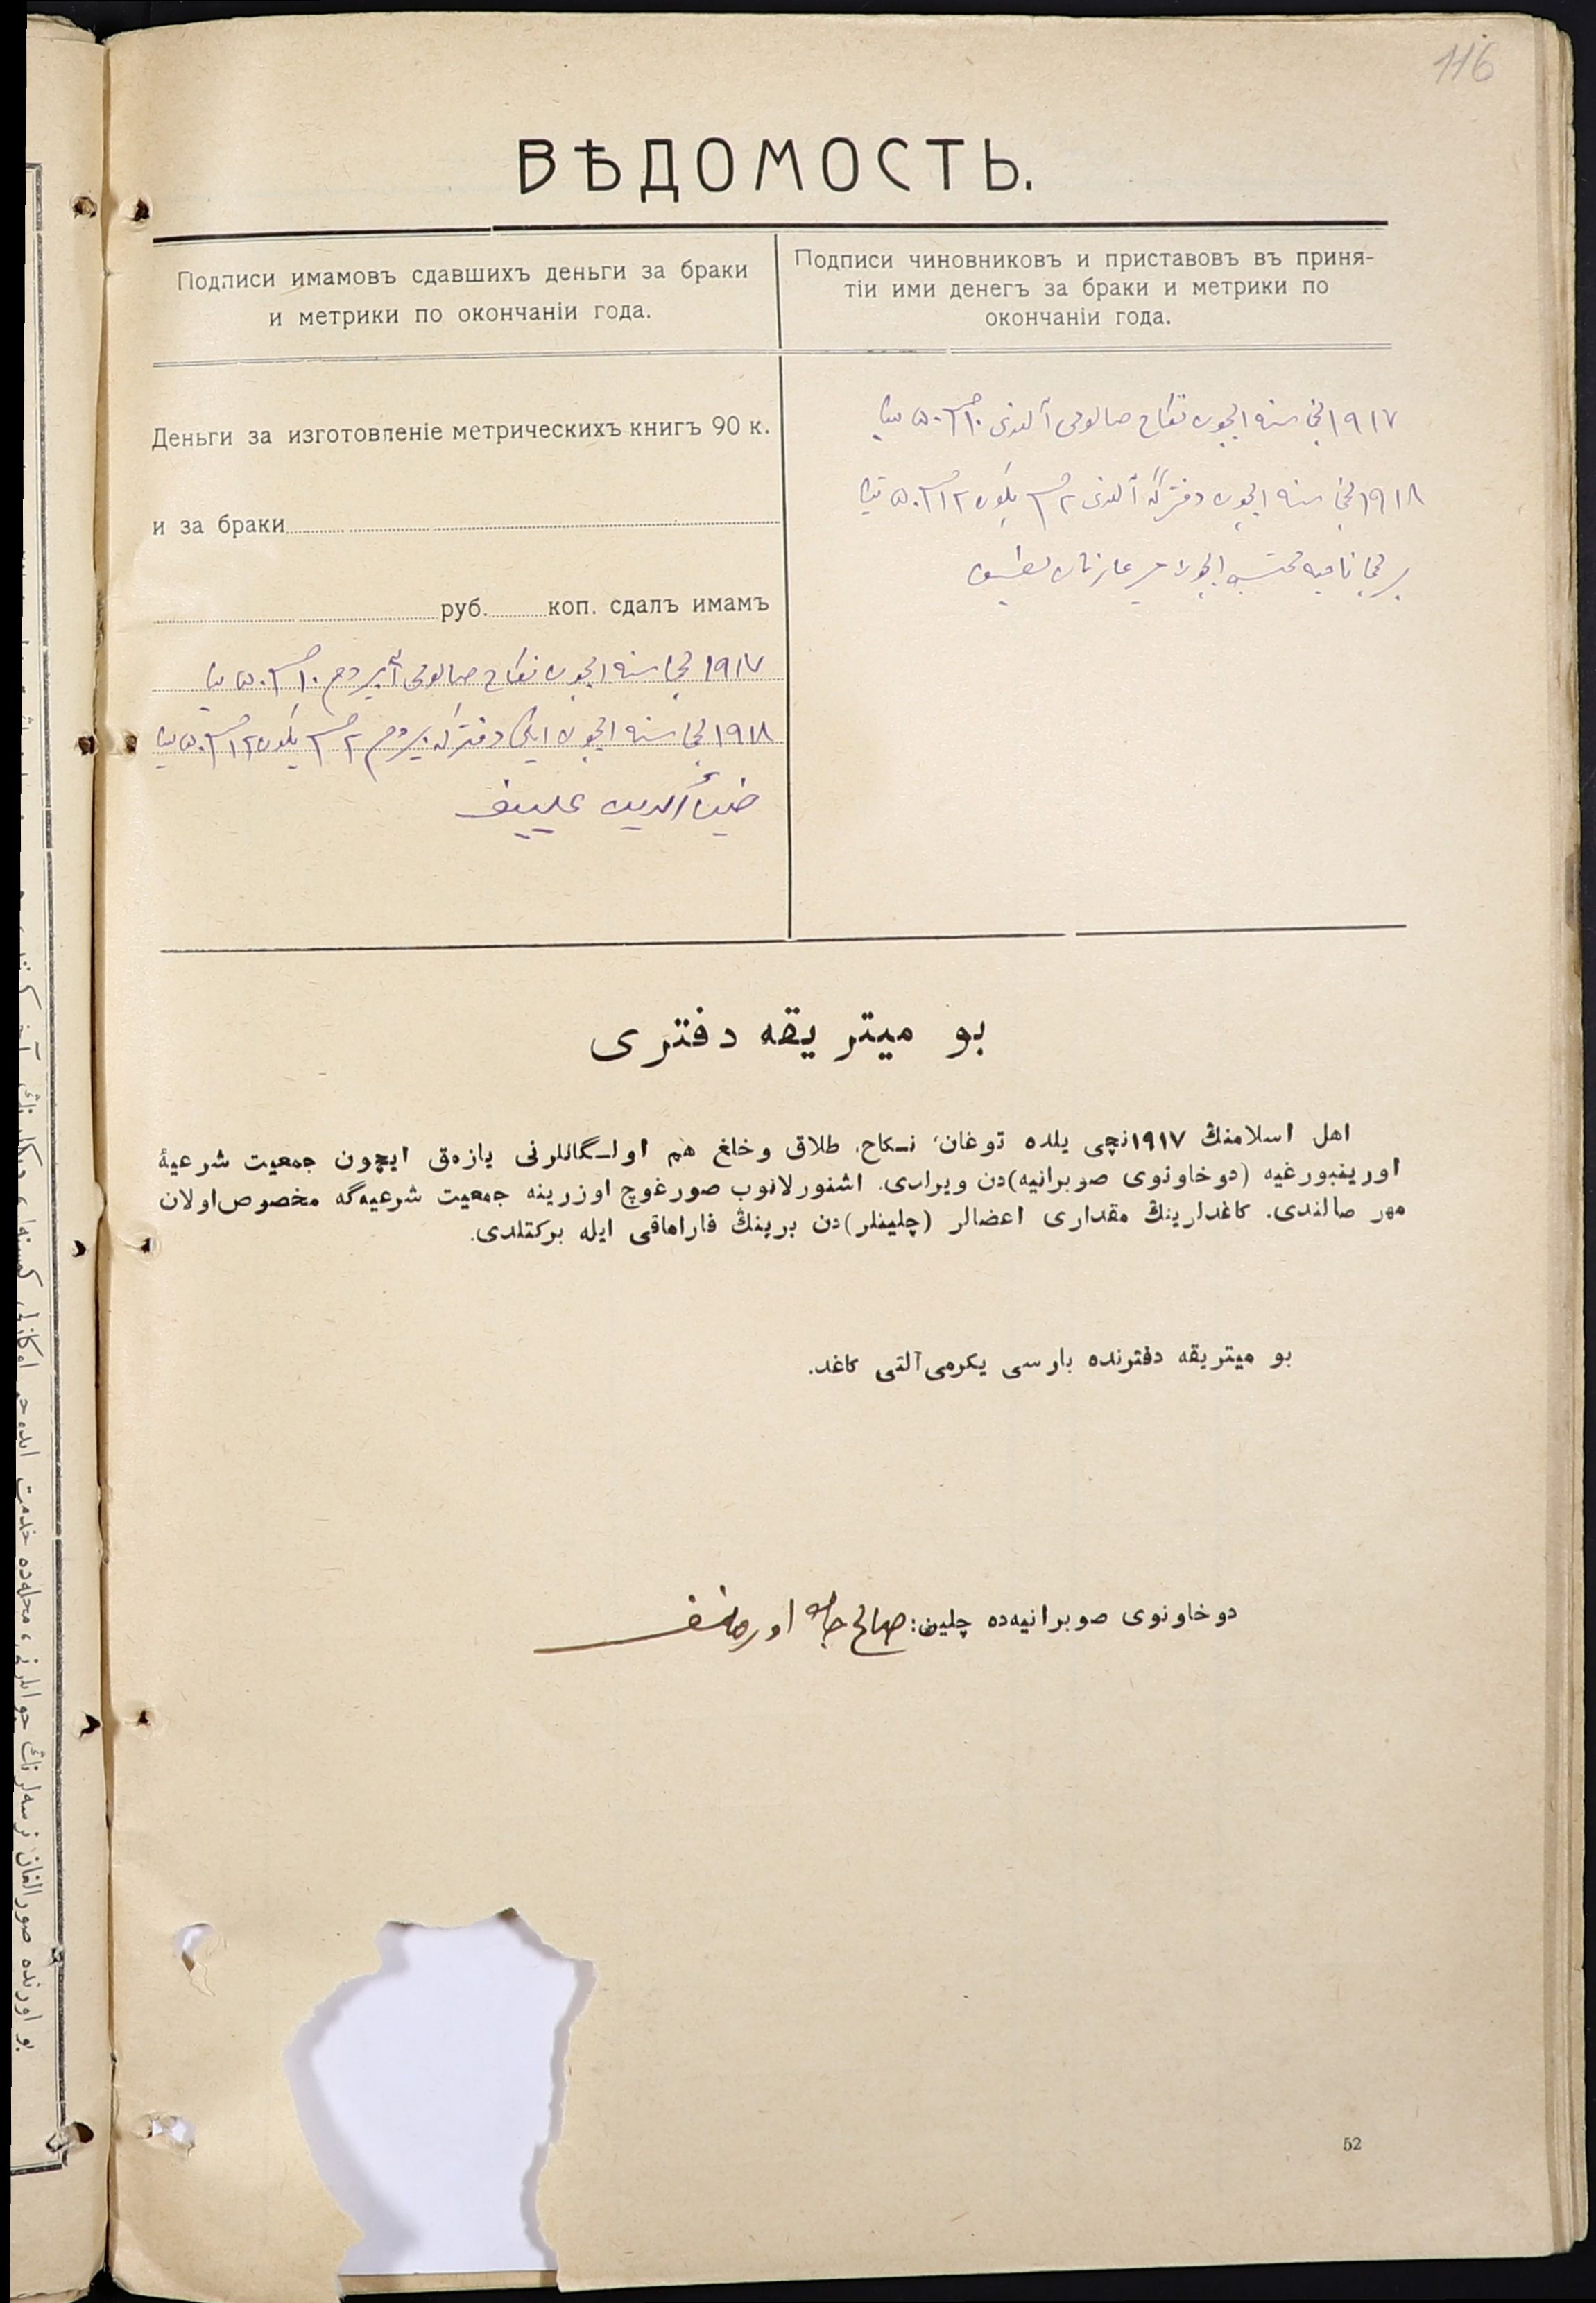 116
ВѢДОМОСТЬ.
Подписи имамовъ сдавшихъ деньги за браки
и метрики по окончаніи года.
Подписи чиновниковъ и приставовъ въ приня-
тіи ими денегъ за браки и метрики по
окончаніи года.
Деньги за изготовленіе метрическихъ книгъ 90 к.
и за браки
руб. коп. сдалъ имамъ
۱۹۱۷ نچی سنه ایچون نکاح صالوی
۱۹۱۸ نچی سنه ایچون ایکی دفترگه بیردم
ضیاءالدین علییف
۱۹۱۷ نچی سنه ایچون نکاح صالوی آلندی
۱۹۱۸ نچی سنه ایچون دفترگه آلندی
بو میتریقه دفتری
اهل اسلامنڭ ۱۹۱۷نچی یلده توغان، نـکاح، طلاق وخلغ هم اولـگانلرنی یازمق ایچون جمعیت شرعیهٔ
اورینبورغیه (دوخاونوی صوبرانیه)دن ویرلدی. اشنورلانوب صورغوچ اوزرینه جمعیت شرعیه‌گه مخصوص اولان
مهر صالندی. کاغدلرینڭ مقداری اعضالر (چلینلر)دن برینڭ فاراماقی ایله برکتلدی.
بو میتریقه دفترنده بارسی یکرمی آلتی کاغد.
دوخاونوی صوبرانیه‌ده چلین: صالح جان اورمانف
52
بو اورنده صورالغان نرسه‌لرنڭ جوابلرنی، محله‌ده خدمت ایده‌چ